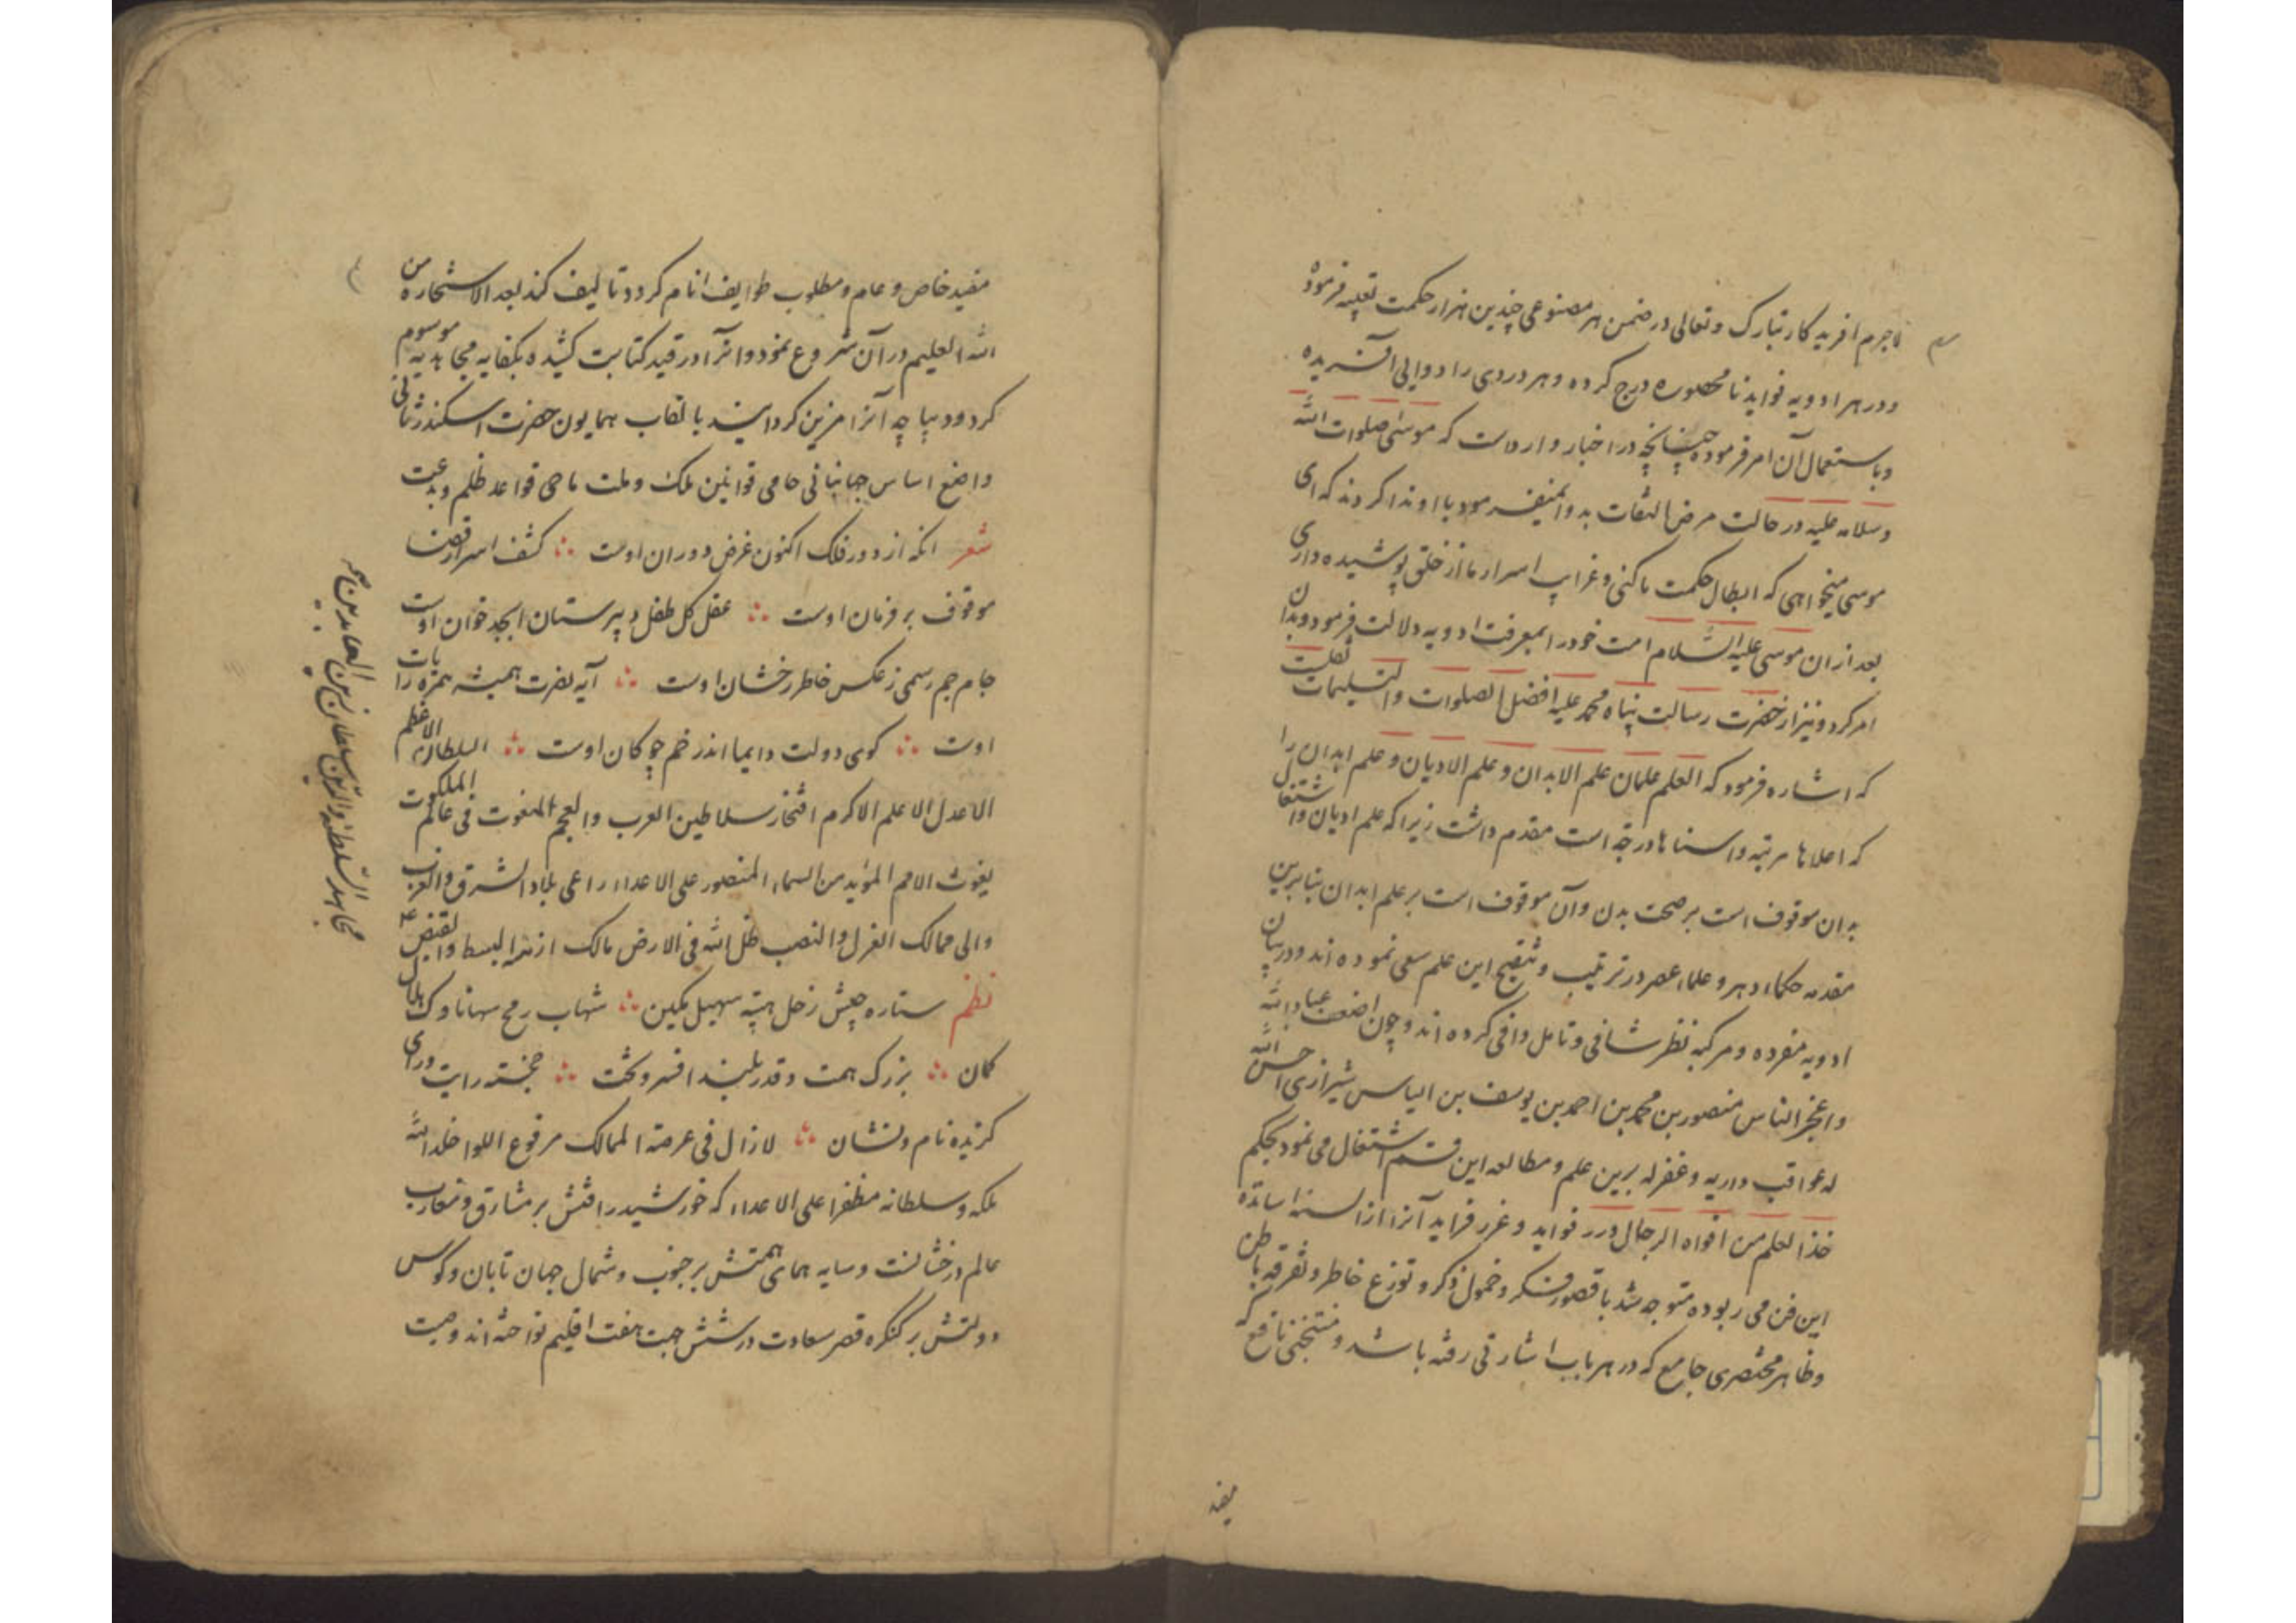 لاجرم افریدکار تبارک و تعالی در ضمن هر مصنوعی چندین هزار حکمت تعبیه فرموده
و در هر ادویه فواید نامحصوره درج کرده و هر دردی را دوایی آفریده
و باستعمال آن امر فرموده چنانچه در اخبار واردست که موسی صلوات الله
و سلامه علیه در حالت مرض التفات بدوا نمیفرمود باو ندا کردند که ای
موسی میخواهی که ابطال حکمت ما کنی و غرایب اسرار ما از خلق پوشیده داری
بعد ازان موسی علیه السلام امت خود را بمعرفت ادویه دلالت فرمود و بدان
امر کرد و نیز از حضرت رسالت پناه محمد علیه افضل الصلوات و التسلیمات نقلست
که اشاره فرمود که العلم علمان علم الابدان و علم الادیان و علم ابدان را
که اعلاها مرتبه و اسناها درجه است مقدم داشت زیرا که علم ادیان و اشتغال
بدان موقوف است بر صحت بدن و آن موقوف است بر علم ابدان بنابرین
مقدمه حکماء دهر و علماء عصر در ترتیب و تنقیح این علم سعی نموده اند و در بیان
ادویه مفرده و مرکبه نظر شافی و تامل وافی کرده اند و چون اضعف عباد الله
و اعجز الناس منصور بن محمد بن احمد بن یوسف بن الیاس شیرازی احسن الله
له عواقب داریه و غفر له برین علم و مطالعه این قسم اشتغال می نمود بحکم
خذ العلم من افواه الرجال درر فواید و غرر فراید آنرا از السنه اساتذه
این فن می ربود متوجه شد با قصور فکر و خمول ذکر و توزع خاطر و تفرقه باطن
و ظاهر مختصری جامع که در هر باب اشارتی رفته باشد و منتخبی نافع که
مفید
مفید خاص و عام و مطلوب طوایف انام کردد تالیف کند بعد الاستخاره من
الله العلیم در آن شروع نمود و انرا در قید کتابت کشیده بکفایه مجاهدیه موسوم
کرد و دیباچه آنرا مزین کردانید بالقاب همایون حضرت اسکندر ثانی
واضع اساس جهانبانی حامی قوانین ملک و ملت ماحی قواعد ظلم و بدعت
شعر انکه از دور فلک اکنون غرض دوران اوست ∴ کشف اسرار قضا
موقوف بر فرمان اوست ∴ عقل کل طفل دبیرستان ابجد خوان اوست
جام جم رسمی ز عکس خاطر رخشان اوست ∴ آیه نصرت همیشه همره رایات
اوست ∴ کوی دولت دایما اندر خم چوکان اوست ∴ السلطان الاعظم
الاعدل الاعلم الاکرم افتخار سلاطین العرب والعجم المنعوت فی عالم الملکوت
بغوث الامم المؤید من السماء المنصور علی الاعداء راعی بلاد الشرق والغرب
والی ممالک العزل والنصب ظل الله فی الارض مالک ازمه البسط والقبض
نظم ستاره جیش زحل هیبه سهیل نکین ∴ شهاب رمح سها ناوک هلال
کمان ∴ بزرک همت و قدر بلند افسر و تخت ∴ خجسته رایت ورای
کزیده نام و نشان ∴ لازال فی عرصة الممالک مرفوع اللوا خلد الله
ملکه و سلطانه مظفرا علی الاعداء که خورشید رافتش بر مشارق و مغارب
عالم درخشانست و سایه همای همتش بر جنوب و شمال جهان تابان و کوس
دولتش بر کنکره قصر سعادت در شش جهت هفت اقلیم نواخته اند وصیت
مجاهد السلطنة والدین سلطان زین العابدین